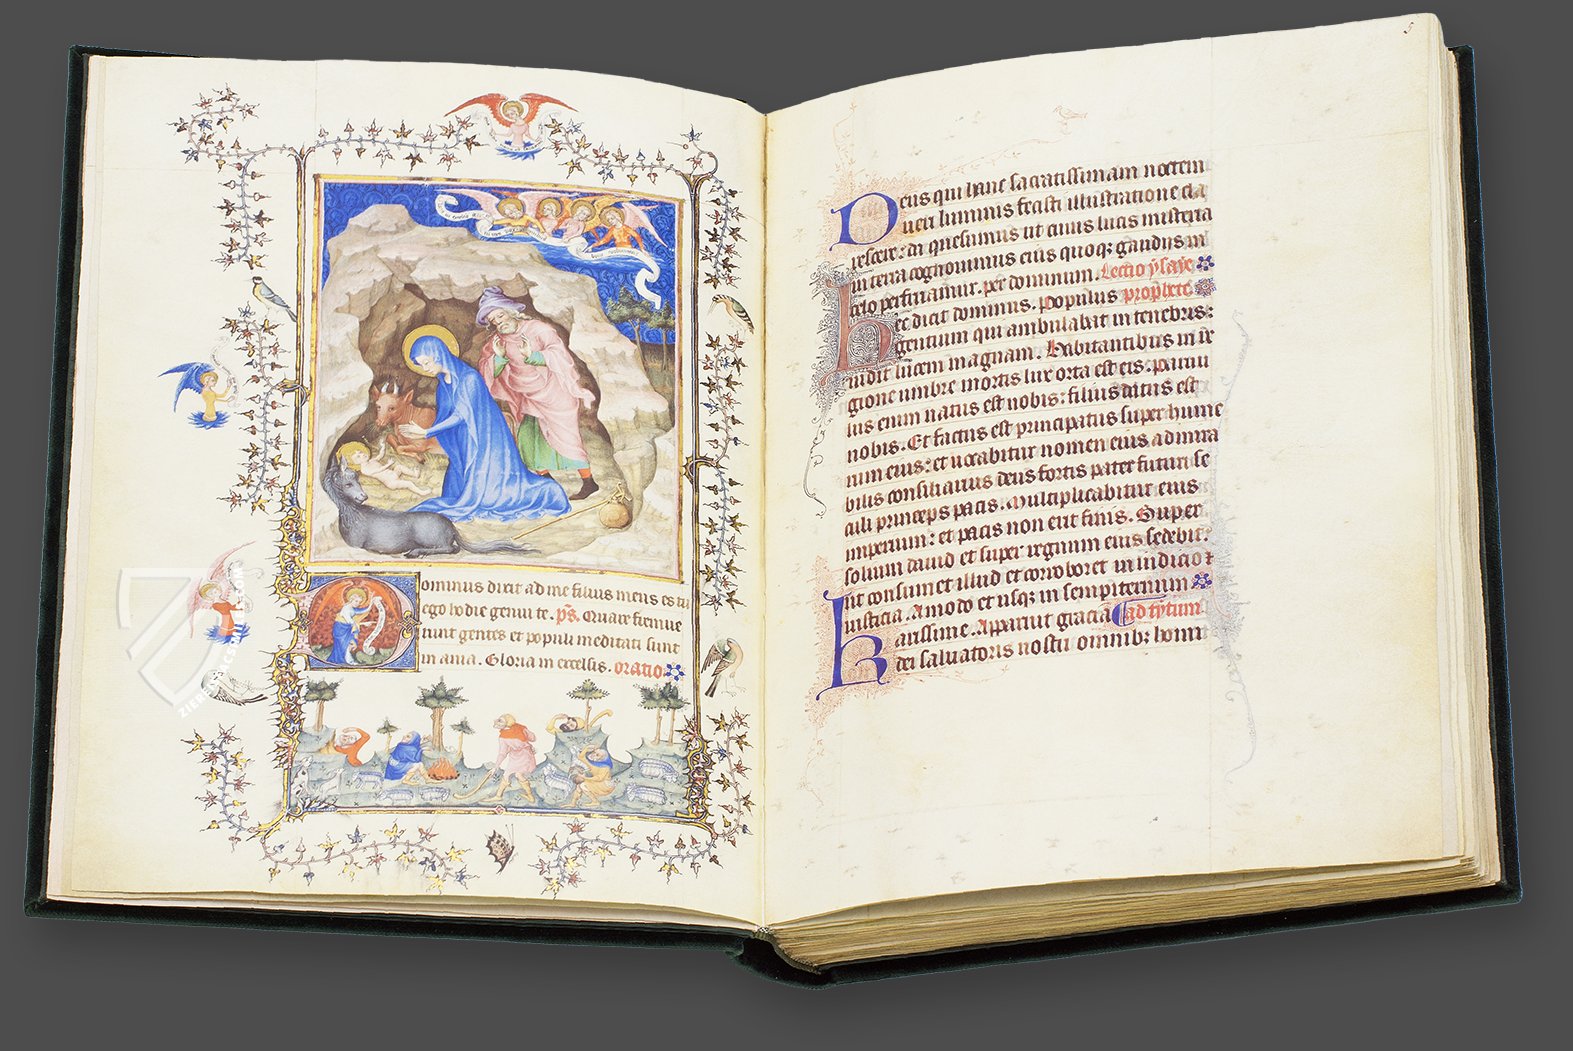 ominus dixit ad me filius meus es tu
ego hodie genui te. ps. Quare fremue
runt gentes et populi meditati sunt
in ania. Gloria in excelsis. oratio
5
Deus qui hanc sacratissimam noctem
veri luminis fecisti illustratione cla
rescere: da quesumus ut cuius lucis misteria
in terra cognouimus eius quoqz gaudiis in
celo perfruamur. per dominum. Lectio ysaye
Hec dicit dominus. Populus prophete
gentium qui ambulabat in tenebris:
uidit lucem magnam. Habitantibus in re
gione umbre mortis lux orta est eis. paruu
lus enim natus est nobis: filius datus est
nobis. Et factus est principatus super hume
rum eius: et uocabitur nomen eius admira
bilis consiliarius deus fortis pater futuri se
culi princeps pacis. Multiplicabitur eius
imperium: et pacis non erit finis. Super
solium dauid et super regnum eius sedebit:
ut confirmet illud et corroboret in iudicio et
iusticia. Amodo et usqz in sempiternum
Karissime. Apparuit gracia ad tytum
dei saluatoris nostri omnibz homi
ZIEREIS FACSIMILES